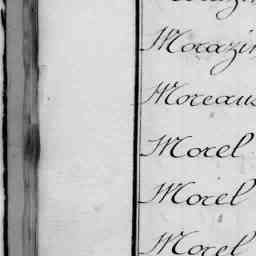 Morazin
Moreau
Morel
Morel
Morel